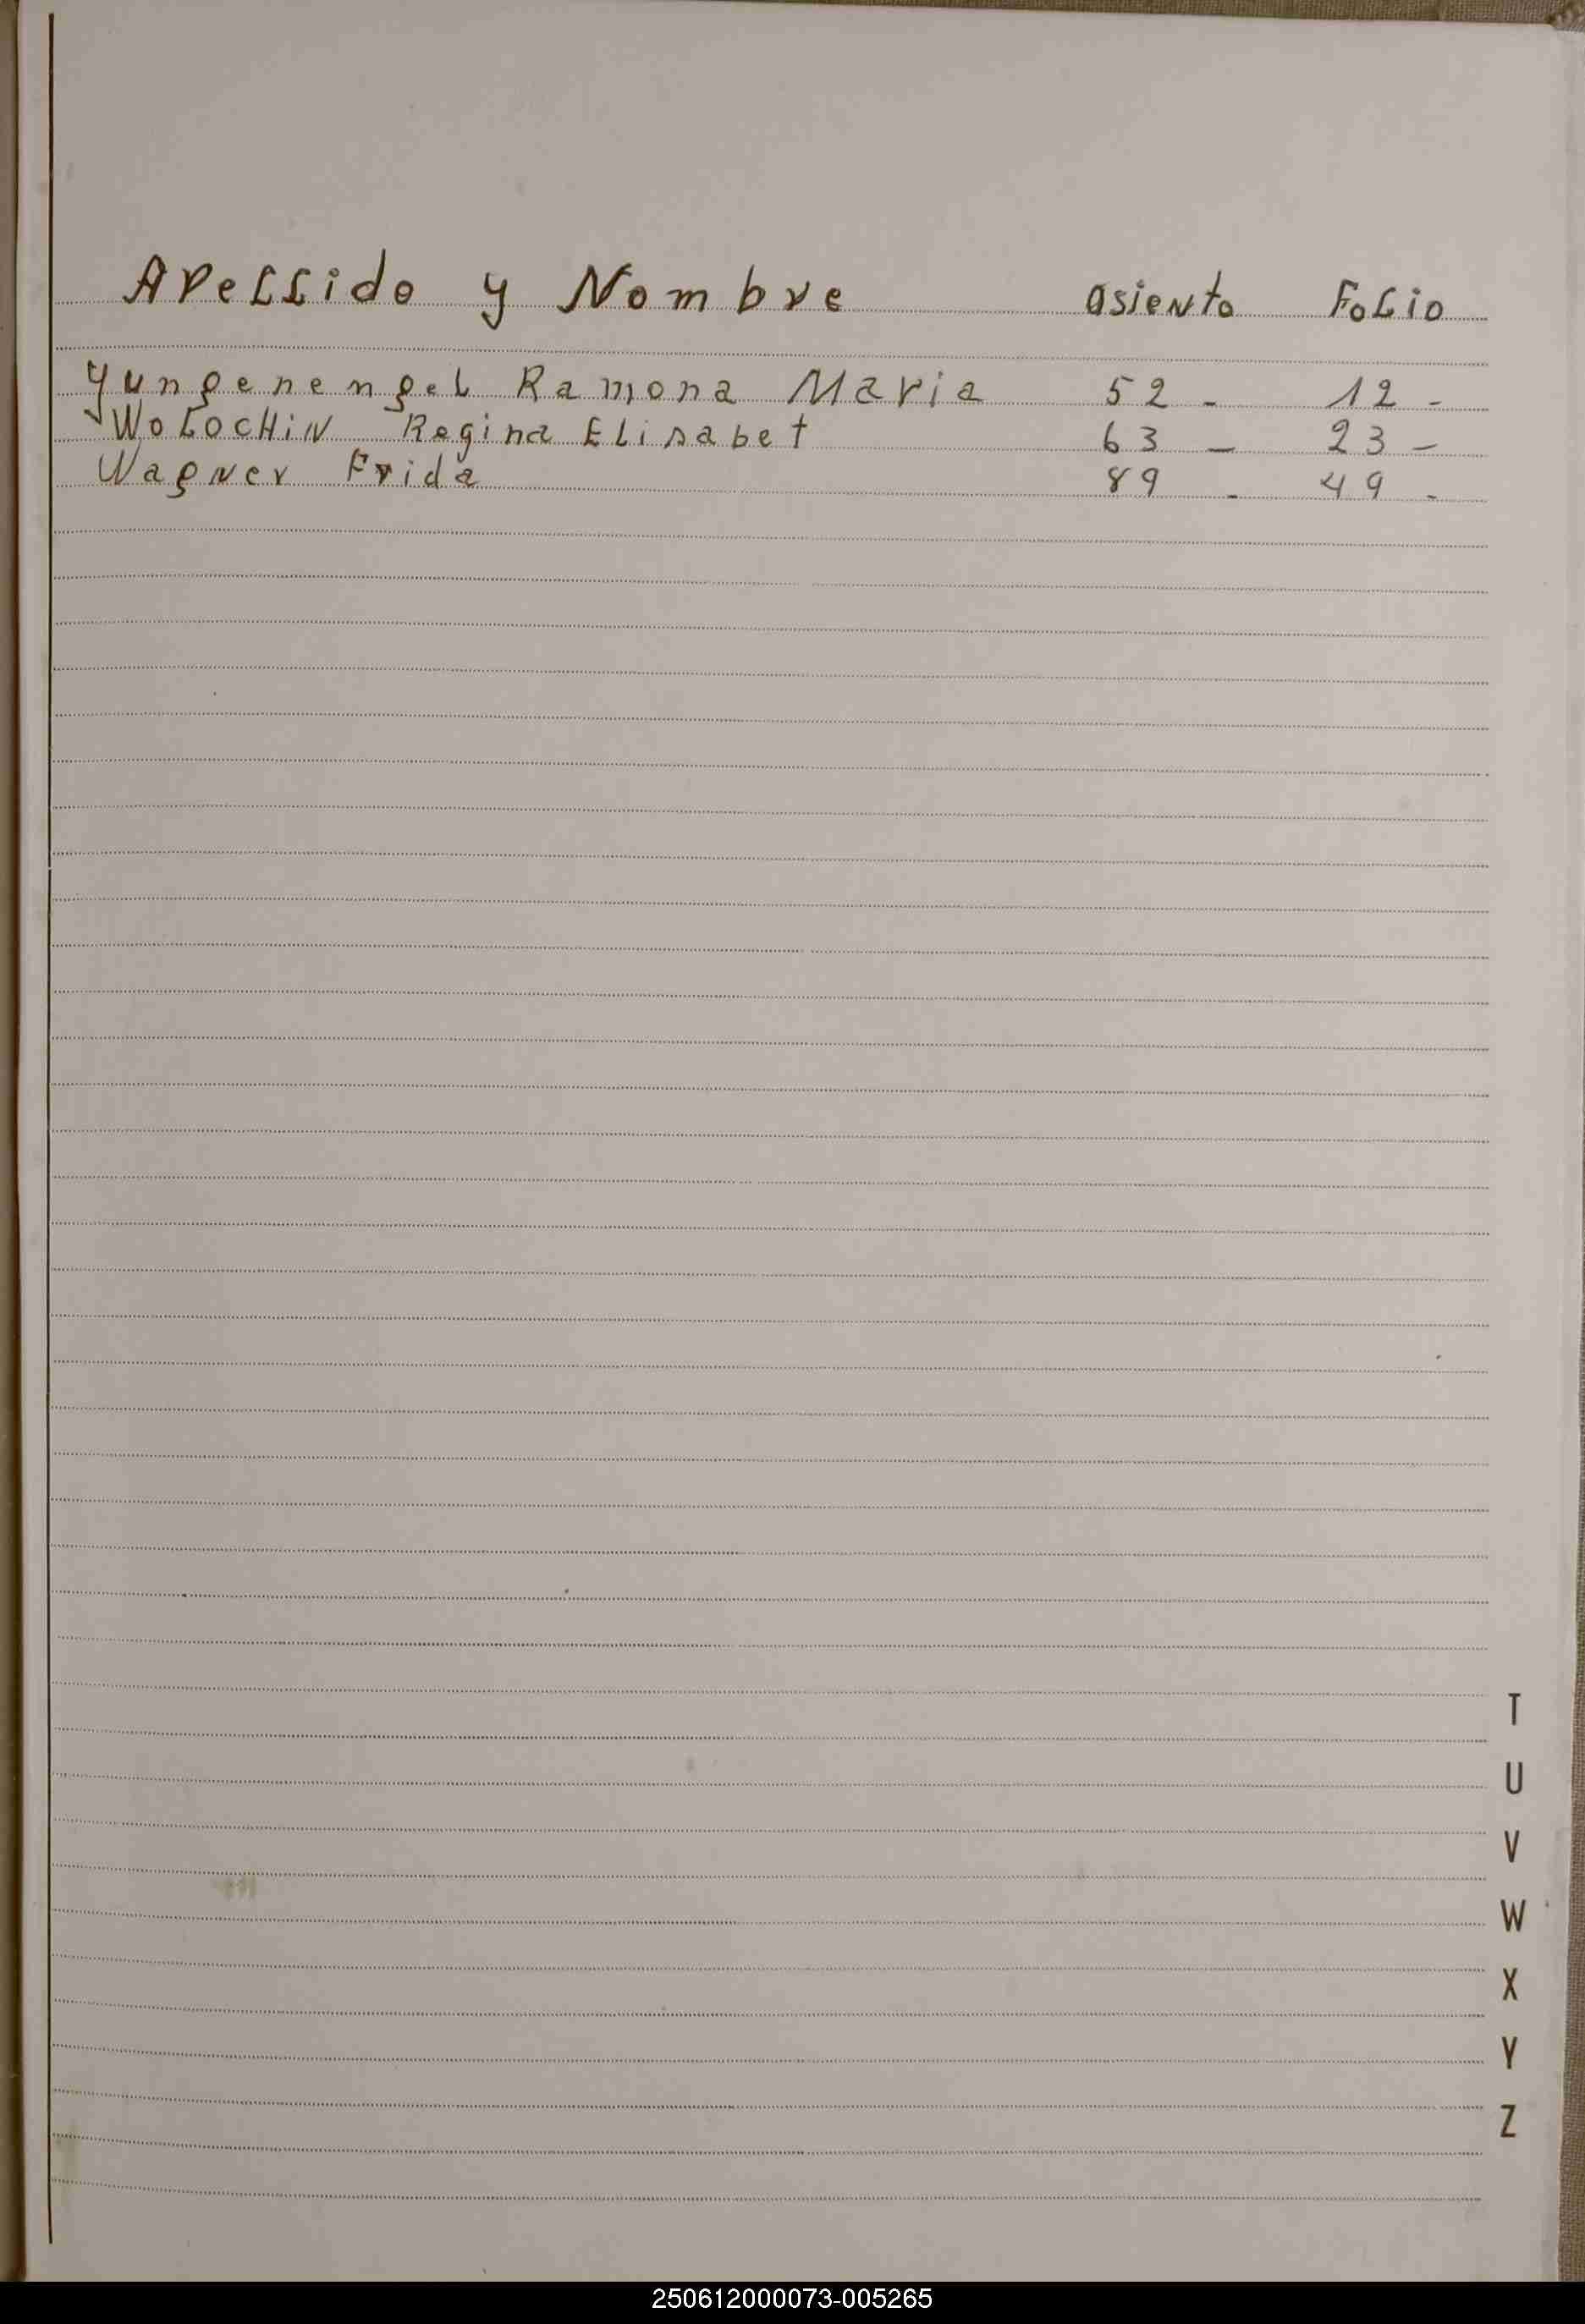 Apellido y Nombre asiento Folio
Yungenengel Ramona Maria 52 - 12 -
Wolochin Regina Elisabet 63 - 23 -
Wagner Frida 89 - 49 -
T
U
V
W
X
Y
Z
250612000073-005265